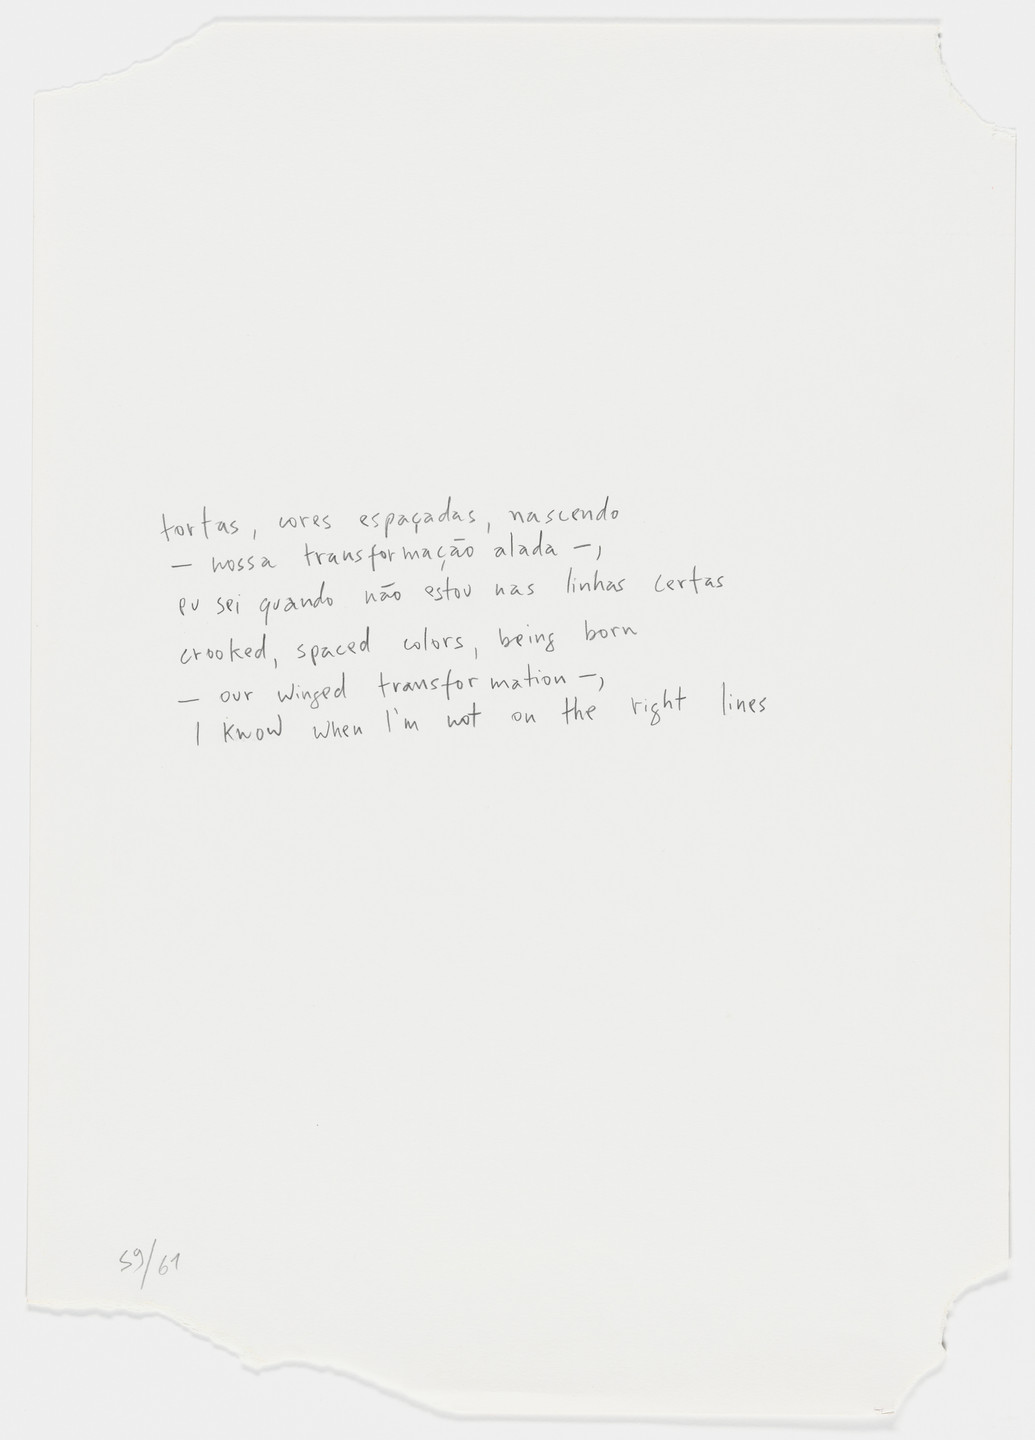 tortas, cores espaçadas, nascendo
— nossa transformação alada —,
eu sei quando não estou nas linhas certas
crooked, spaced colors, being born
— our winged transformation —,
I know when I'm not on the right lines
59/61